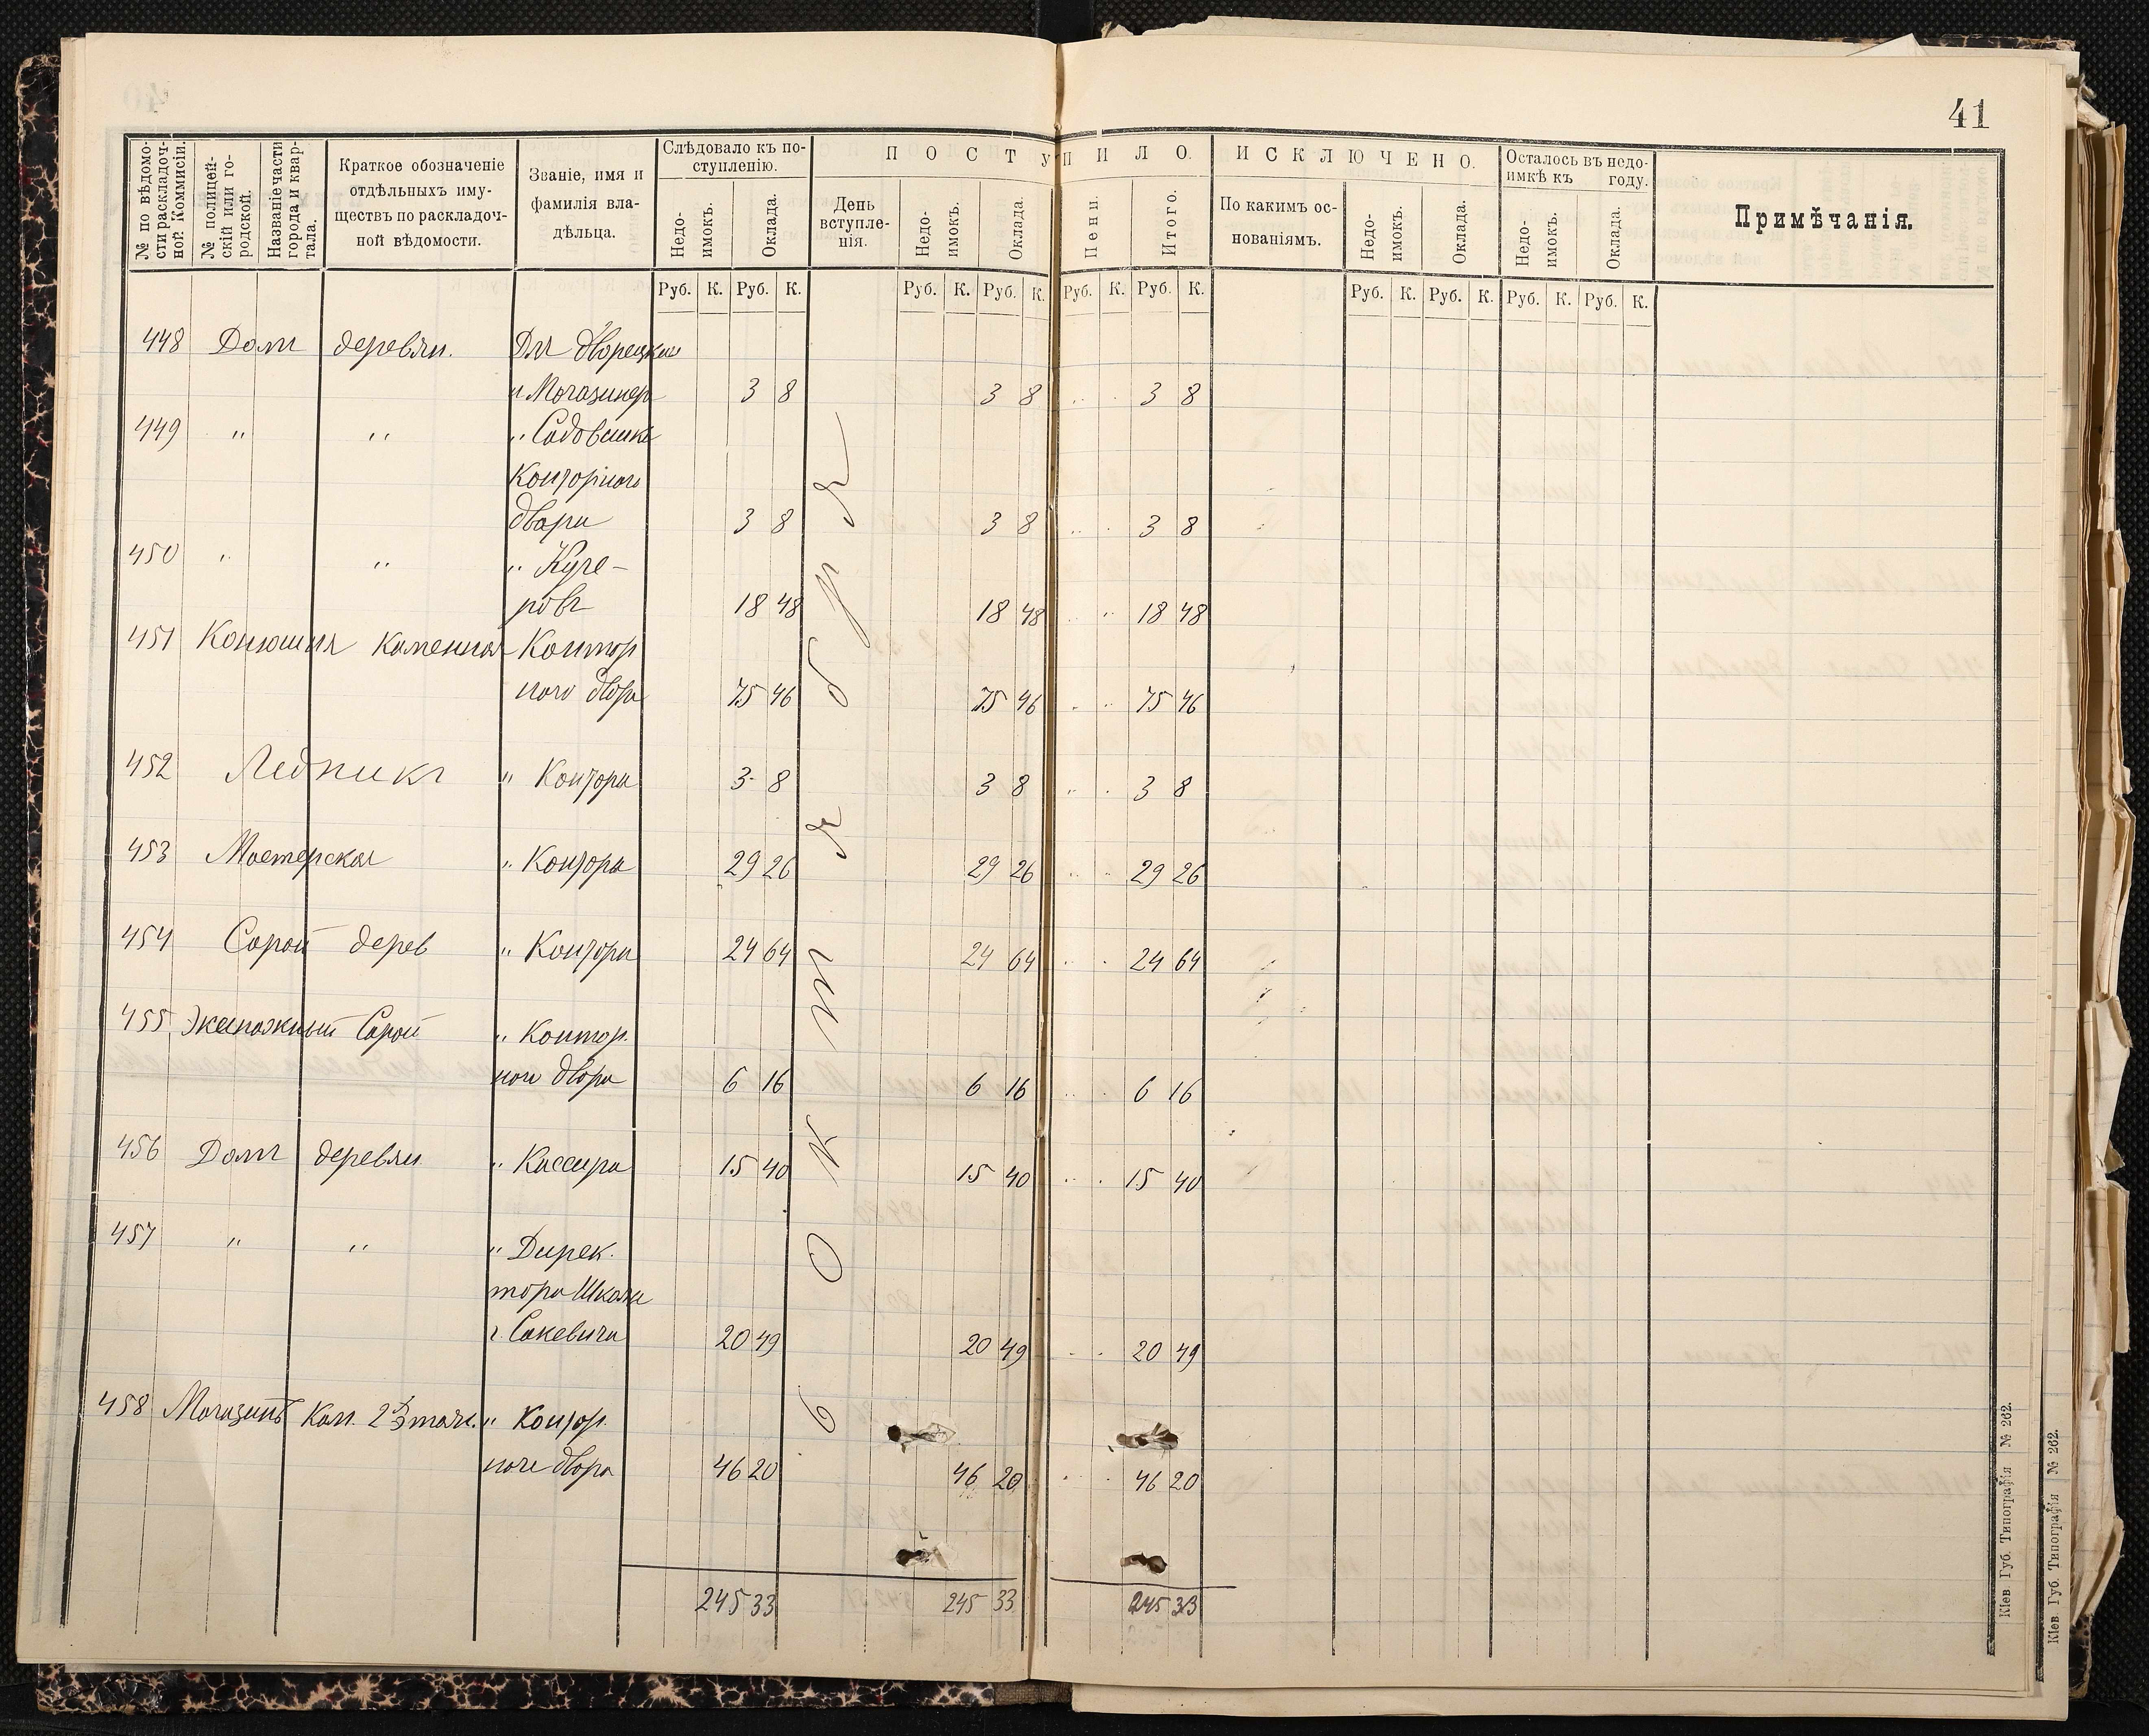 41
№ по вѣдомо-
сти раскладоч-
ной Коммисіи.
№ полицей-
скій или го-
родской.
Названіе части
города и квар-
тала.
Краткое обозначеніе
отдѣльныхъ иму-
ществъ по раскладоч-
ной вѣдомости.
Званіе, имя и
фамилія вла-
дѣльца.
Слѣдовало къ по-
ступленію.
Недо-
имокъ.
Оклада.
ПОСТУПИЛО.
День
вступле-
нія.
Недо-
имокъ.
Оклада.
Пени.
Итого.
ИСКЛЮЧЕНО.
По какимъ ос-
нованіямъ.
Недо-
имокъ.
Оклада.
Осталось въ недо-
имкѣ къ году.
Недо-
имокъ.
Оклада.
Примѣчанія.
Руб. К. Руб. К. Руб. К. Руб. К. Руб. К. Руб. К. Руб. К. Руб. К. Руб. К. Руб. К.
448 Домъ деревян. Для дворецкаго
и Магазинера 3 8 3 8 3 8
449 " " " Садовника
Конторного
двора 3 8 3 8 3 8
450 " " " Куче-
ровъ 18 48 18 48 18 48
451 Конюшня каменная Контор
ного двора 75 46 75 46 75 46
452 Ледникъ " Конторы 3 8 3 8 3 8
453 Мастерская " Конторы 29 26 29 26 29 26
454 Сарай дерев " Конторы 24 64 24 64 24 64
455 Экипажный Сарай " Контор.
ного двора 6 16 6 16 6 16
456 Домъ деревян. " Кассира 15 40 15 40 15 40
457 " " " Дирек.
тора Школы
г. Сакевича 20 49 20 49 20 49
458 Магазинъ кам. 2х этажн. " Контор.
ного двора 46 20 46 20 46 20
6 Октября
245 33 245 33 245 33
Кіев. Губ. Типографія № 262.
Кіев. Губ. Типографія № 262.